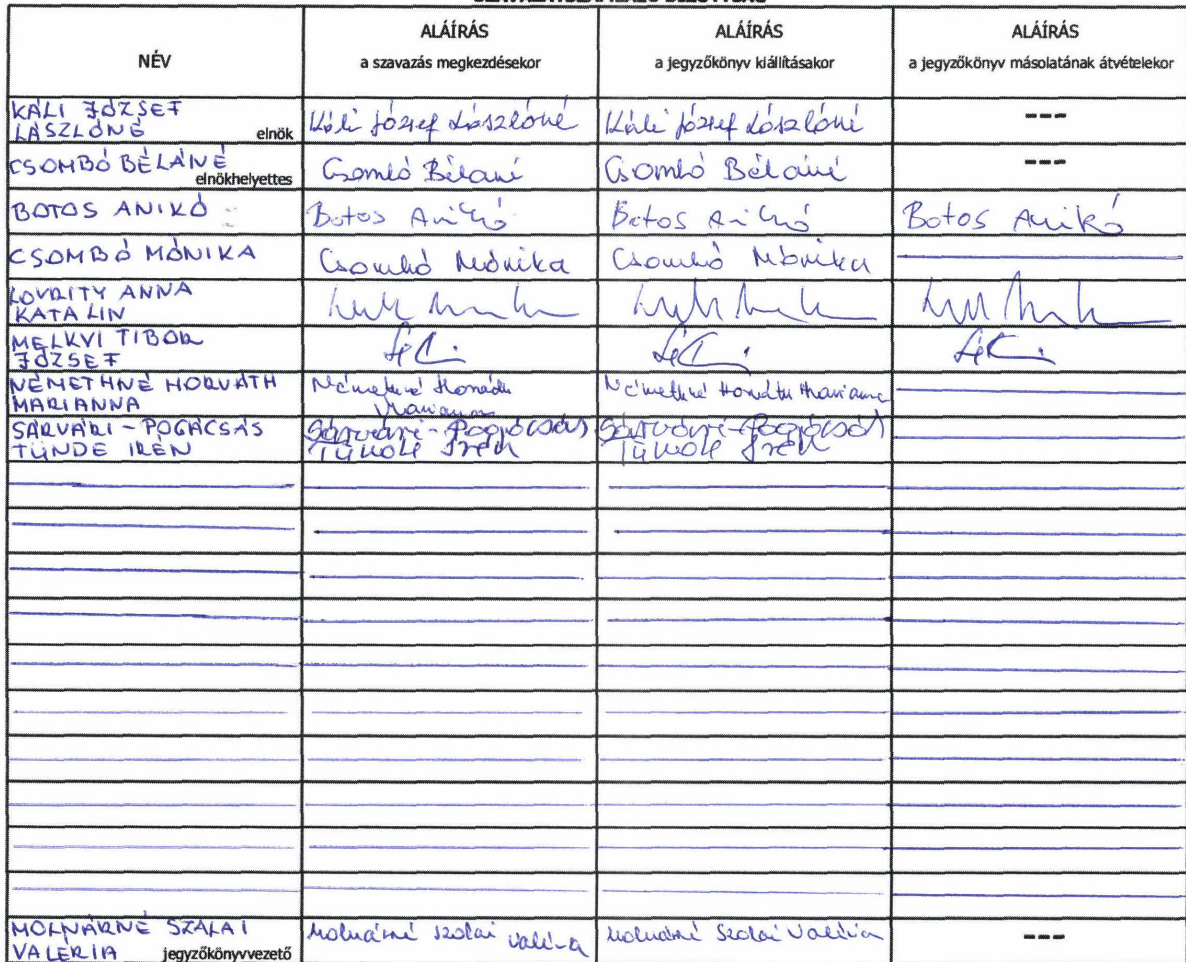 NÉV
ALÁÍRÁS
a szavazás megkezdésekor
ALÁÍRÁS
a jegyzőkönyv kiállításakor
ALÁÍRÁS
a jegyzőkönyv másolatának átvételekor
KÁLI JÓZSEF
LÁSZLÓNÉ elnök
Káli József Lászlóné
Káli József Lászlóné
---
CSOMBÓ BÉLÁNÉ
elnökhelyettes
Csombó Béláné
Csombó Béláné
---
BOTOS ANIKÓ
Botos Anikó
Botos Anikó
Botos Anikó
CSOMBÓ MÓNIKA
Csombó Mónika
Csombó Mónika
LOVRITY ANNA
KATALIN
MELKVI TIBOR
JÓZSEF
NÉMETHNÉ HORVÁTH
MARIANNA
Némethné Horváth
Marianna
Némethné Horváth Marianna
SÁRVÁRI-POGÁCSÁS
TÜNDE IRÉN
Sárvári-Pogácsás
Tünde Irén
Sárvári-Pogácsás
Tünde Irén
MOLNÁRNÉ SZALAI
VALÉRIA jegyzőkönyvvezető
Molnárné Szalai Valéria
Molnárné Szalai Valéria
---